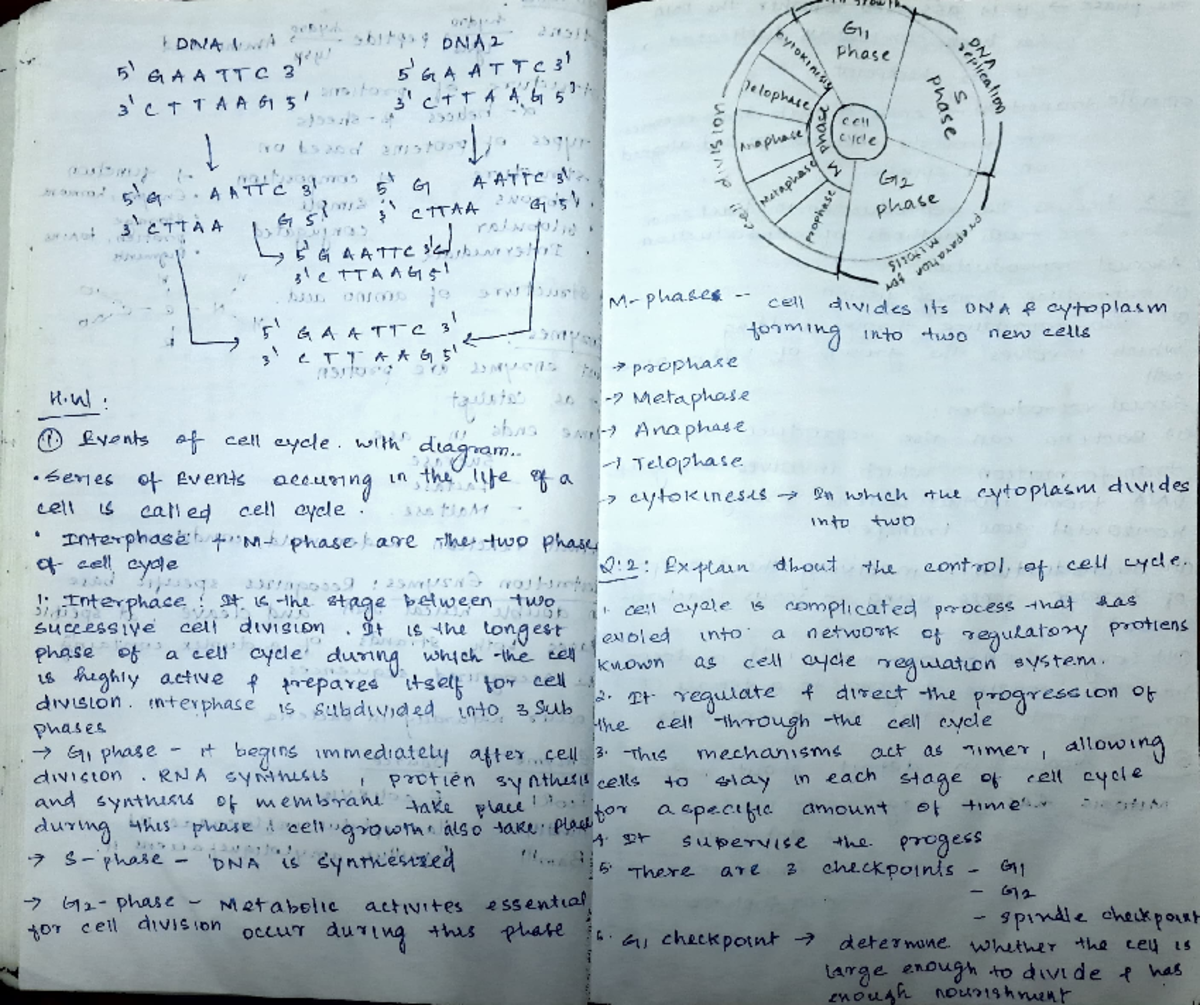 DNA 1 DNA2
5' G A A T T C 3' 5' G A A T T C 3'
3' C T T A A G 5' 3' C T T A A G 5'
5' G A A T T C 3' 5' G A A T T C 3'
3' C T T A A G 5' 3' C T T A A G 5'
5' G A A T T C 3'
3' C T T A A G 5'
5' G A A T T C 3'
3' C T T A A G 5'
H.W:
① Events of cell cycle. with diagram..
• Series of Events occuring in the life of a
cell is called cell cycle.
• Interphase + M- phase are the two phase
of cell cycle
1. Interphase: It is the stage between two
successive cell division. It is the longest
phase of a cell cycle during which the cell
is highly active & prepares itself for cell
division. interphase is subdivided into 3 Sub
phases
→ G1 phase - it begins immediately after cell
division. RNA synthesis, protien synthesis
and synthesis of membrane take place
during this phase. cell growth also take place
→ S-phase - DNA is synthesized
→ G2-phase - Metabolic activites essential
for cell division occur during this phase
growth
G1 phase
DNA replication
S phase
G2 phase
preparation for mitosis
cell cycle
M phase
cytokinesis
Telophase
Anaphase
Metaphase
prophase
cell division
M-phase - cell divides its DNA & cytoplasm
forming into two new cells
→ prophase
→ Metaphase
→ Anaphase
→ Telophase
→ cytokinesis → In which the cytoplasm divides
into two
Q:2: Explain about the control of cell cycle.
1. cell cycle is complicated process that has
evoled into a network of regulatory protiens
known as cell cycle regulation system.
2. It regulate & direct the progression of
the cell through the cell cycle
3. This mechanisms act as timer, allowing
cells to stay in each stage of cell cycle
for a specific amount of time
4. It supervise the progess
5. There are 3 checkpoints - G1
- G2
- spindle checkpoint
6. G1 checkpoint → determine whether the cell is
large enough to divide & has
enough nourishment